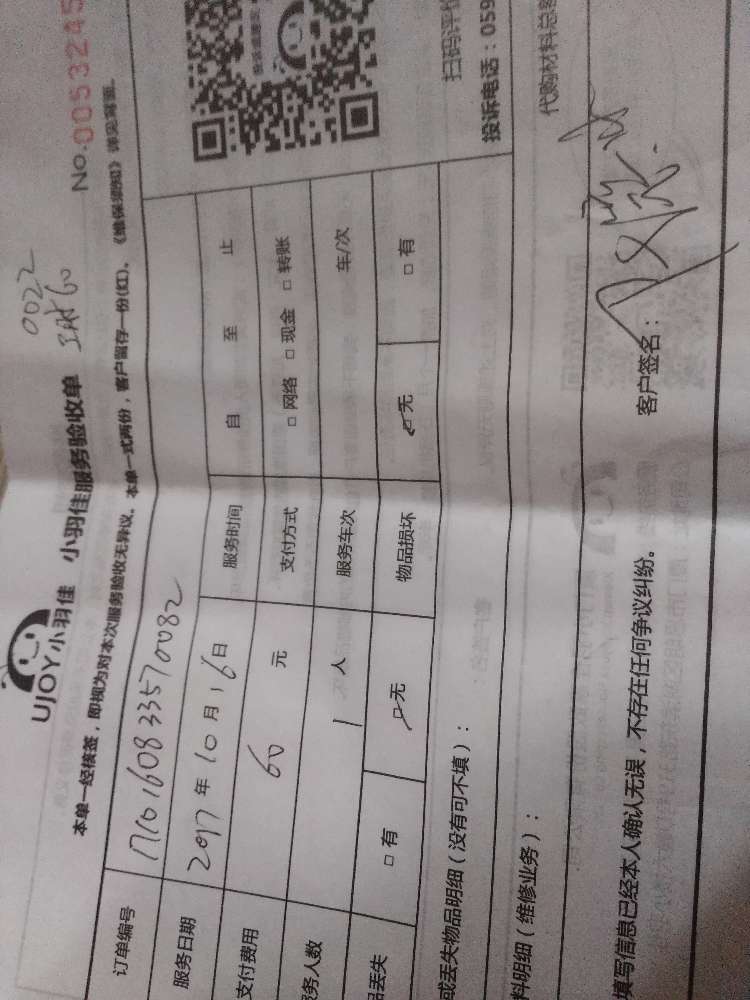 0022
UJOY小羽佳 小羽佳服务验收单
No.0053245
本单一经核签，即视为对本次服务验收无异议。本单一式两份，客户留存一份(红)。《维保须知》详见背面。
订单编号 1710160833570082
服务日期 2017年10月16日 服务时间 自 至 止
支付费用 60 元 支付方式 □网络 □现金 □转账
务人数 1 人 服务车次 车/次
品丢失 □有 □无 物品损坏 □无 □有
扫码评价
投诉电话：059
或丢失物品明细（没有可不填）：
料明细（维修业务）：
代购材料总额
填写信息已经本人确认无误，不存在任何争议纠纷。 客户签名：